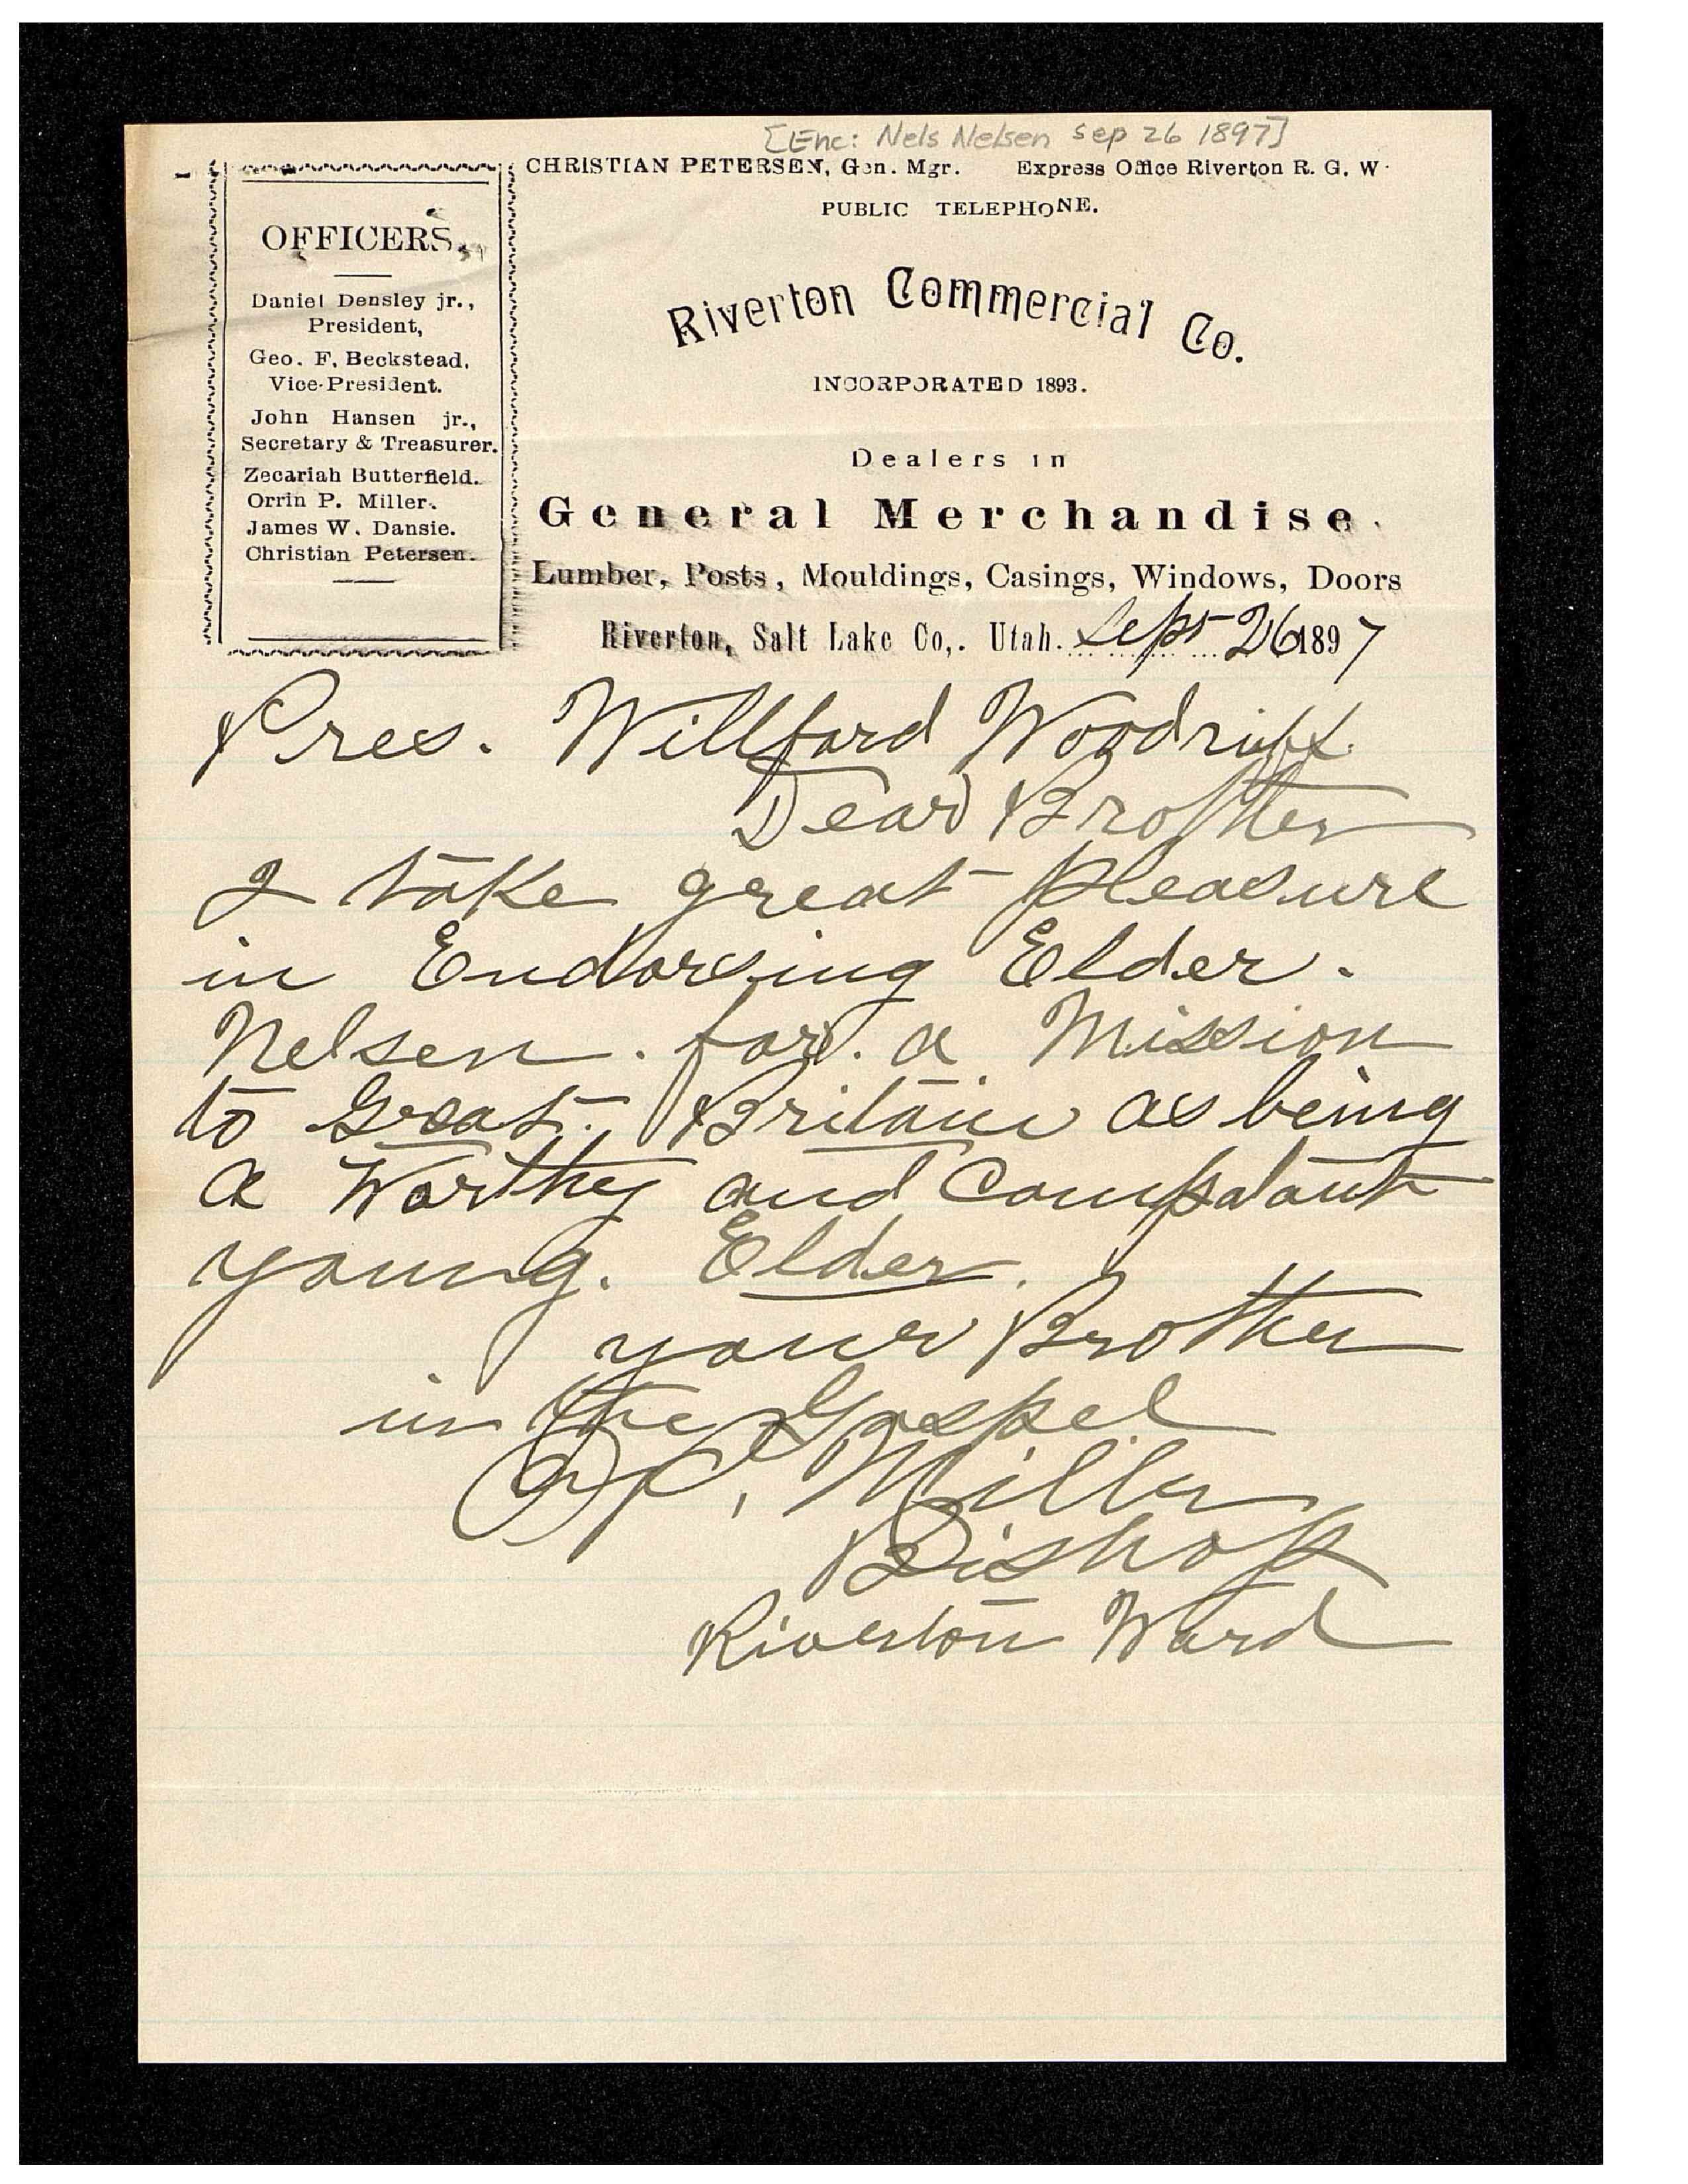 [Enc: Nels Nelsen Sep 26 1897]
CHRISTIAN PETERSEN, Gen. Mgr. Express Office Riverton R. G. W.
PUBLIC TELEPHONE.
OFFICERS,
Daniel Densley jr.,
President,
Geo. F. Beckstead,
Vice-President.
John Hansen jr.,
Secretary & Treasurer.
Zecariah Butterfield.
Orrin P. Miller.
James W. Dansie.
Christian Petersen.
Riverton Commercial Co.
INCORPORATED 1893.
Dealers in
General Merchandise.
Lumber, Posts, Mouldings, Casings, Windows, Doors
Riverton, Salt Lake Co,. Utah. Sept 26 1897
Pres. Willford Woodruff.
Dear Brother
I take great pleasure
in Endorsing Elder.
Nelsen. for. a Mission
to Great. Britain as being
a Worthy and Compatant
young. Elder.
your Brother
in the Gospel
O P, Miller
Bishop
Riverton Ward